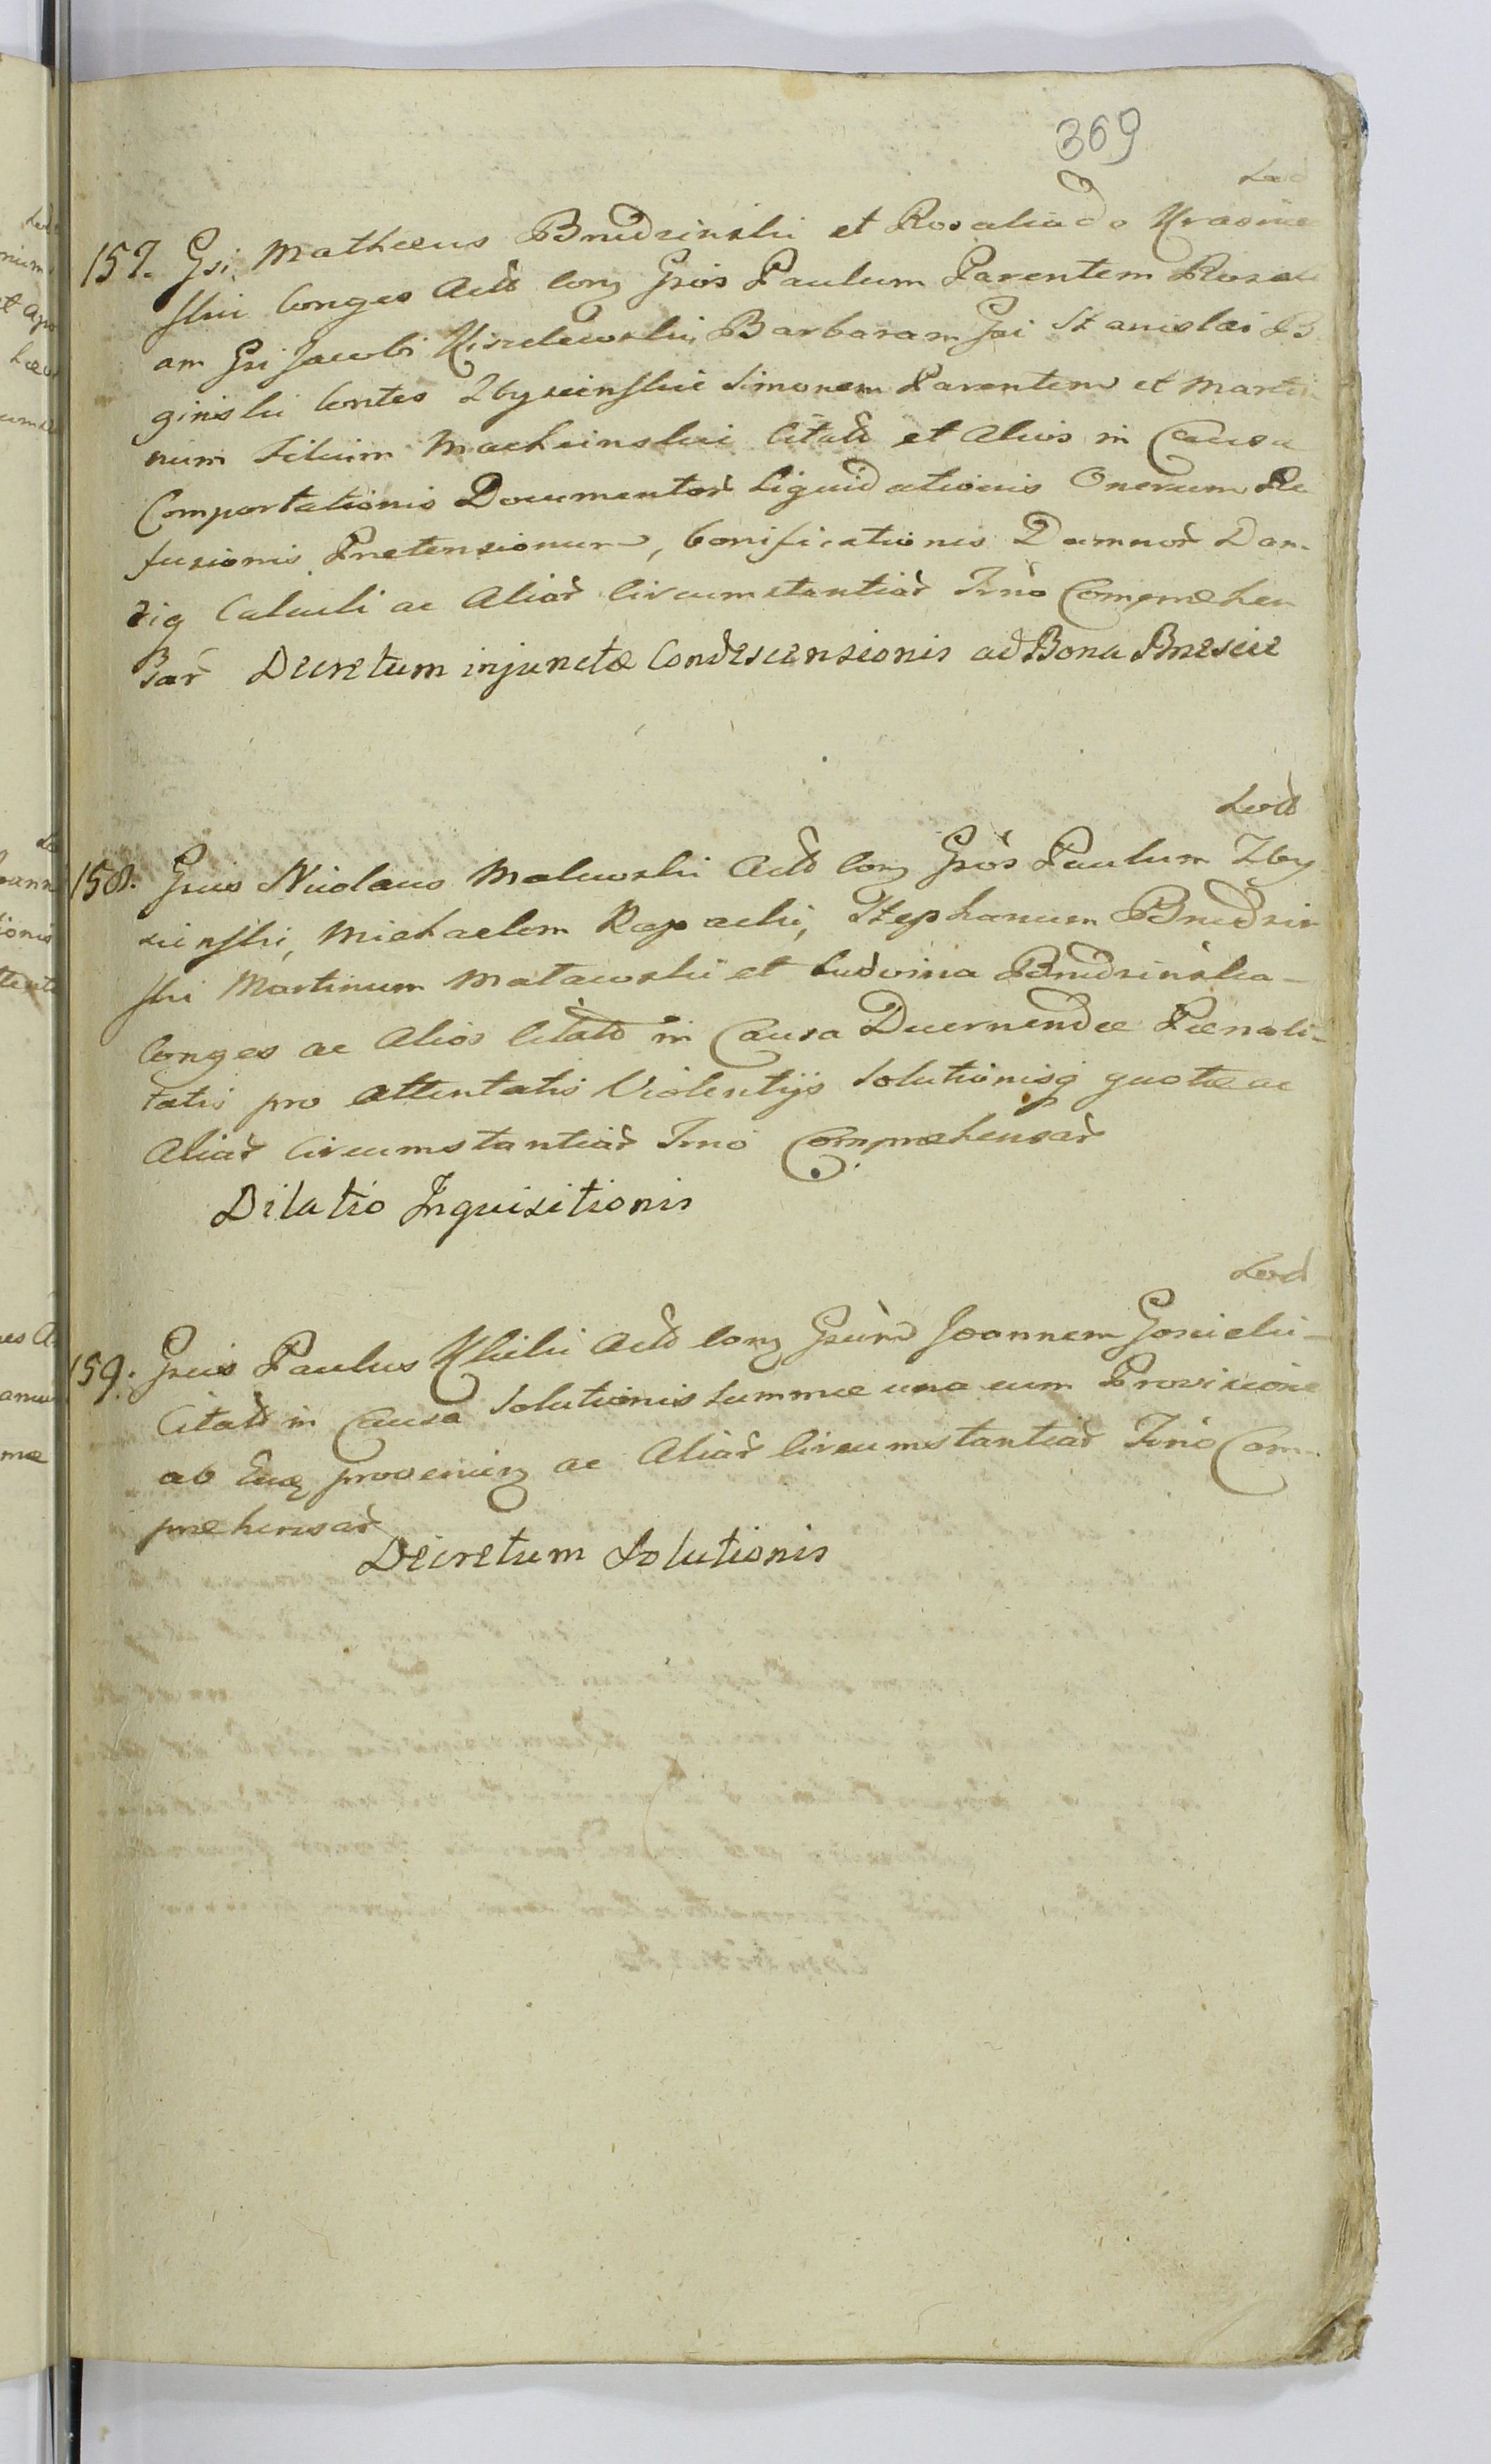 369
Led
157. Gsi Matheus Brudzinski et Rosalia de Krasine
skii Conges Actō conz Gsōs Paulum Parentem Rosali
am Gsi Jacobi Kisielewski, Barbaram Gsi Stanislai B
ginislii Contes Zbyszinskie Simonem Parentem et Marti
num Filium Machcinskie Citatō et Alios in Causa
Comportationis Documentor̃ Liquidationis Onerum Re
fusionis Pretensionum, bonificationis Damnor̃ Dan-
diq Calculi ac Aliar̃ Circumstantiar̃ Tṙno Compræhen
sar̃ Decretum injunctæ Condescensionis ad Bona Brescie
Led
158. Gsus Nicolaus Malewski Actō conz Gsōs Paulum Zby
szinski, Michaelem Rapacki, Stephanum Brudzin
ski Martinum Matawski et Ludvina Brudzinska-
Conges ac Alios Citatō in Causa Decernendæ Pænali-
tatis pro attentatis Violentijs Solutionisq quotæ ac
Aliar̃ Circumstantiar̃ Tṙno Compræhensar̃
Dilatio Inquisitionis
Led
159. Gsus Paulus Klicki Actō conz Gsum̃ Joannem Gosicki-
Citatō in Causa Solutionis Summæ una cum Provisione
ab Eaq provenienz ac Aliar̃ Circumstantiar̃ Tṙno Com-
præhensar̃
Decretum Solutionis